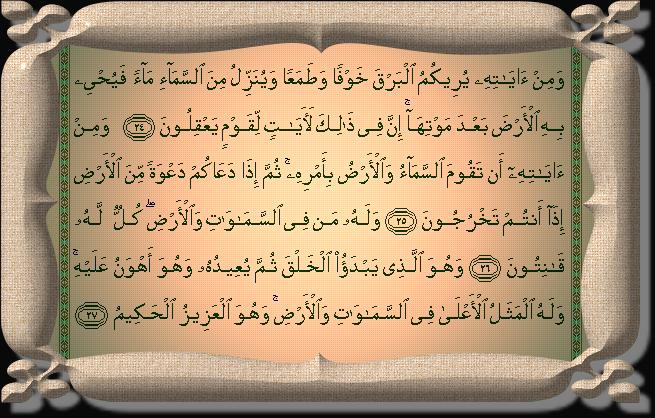 وَمِنْ ءَايَـٰتِهِۦ يُرِيكُمُ ٱلْبَرْقَ خَوْفًا وَطَمَعًا وَيُنَزِّلُ مِنَ ٱلسَّمَآءِ مَآءً فَيُحْىِۦ
بِهِ ٱلْأَرْضَ بَعْدَ مَوْتِهَآ ۚ إِنَّ فِى ذَٰلِكَ لَـَٔايَـٰتٍ لِّقَوْمٍ يَعْقِلُونَ ٢٤ وَمِنْ
ءَايَـٰتِهِۦٓ أَن تَقُومَ ٱلسَّمَآءُ وَٱلْأَرْضُ بِأَمْرِهِۦ ۚ ثُمَّ إِذَا دَعَاكُمْ دَعْوَةً مِّنَ ٱلْأَرْضِ
إِذَآ أَنتُمْ تَخْرُجُونَ ٢٥ وَلَهُۥ مَن فِى ٱلسَّمَـٰوَٰتِ وَٱلْأَرْضِ ۖ كُلٌّ لَّهُۥ
قَـٰنِتُونَ ٢٦ وَهُوَ ٱلَّذِى يَبْدَؤُا۟ ٱلْخَلْقَ ثُمَّ يُعِيدُهُۥ وَهُوَ أَهْوَنُ عَلَيْهِ ۚ
وَلَهُ ٱلْمَثَلُ ٱلْأَعْلَىٰ فِى ٱلسَّمَـٰوَٰتِ وَٱلْأَرْضِ ۚ وَهُوَ ٱلْعَزِيزُ ٱلْحَكِيمُ ٢٧